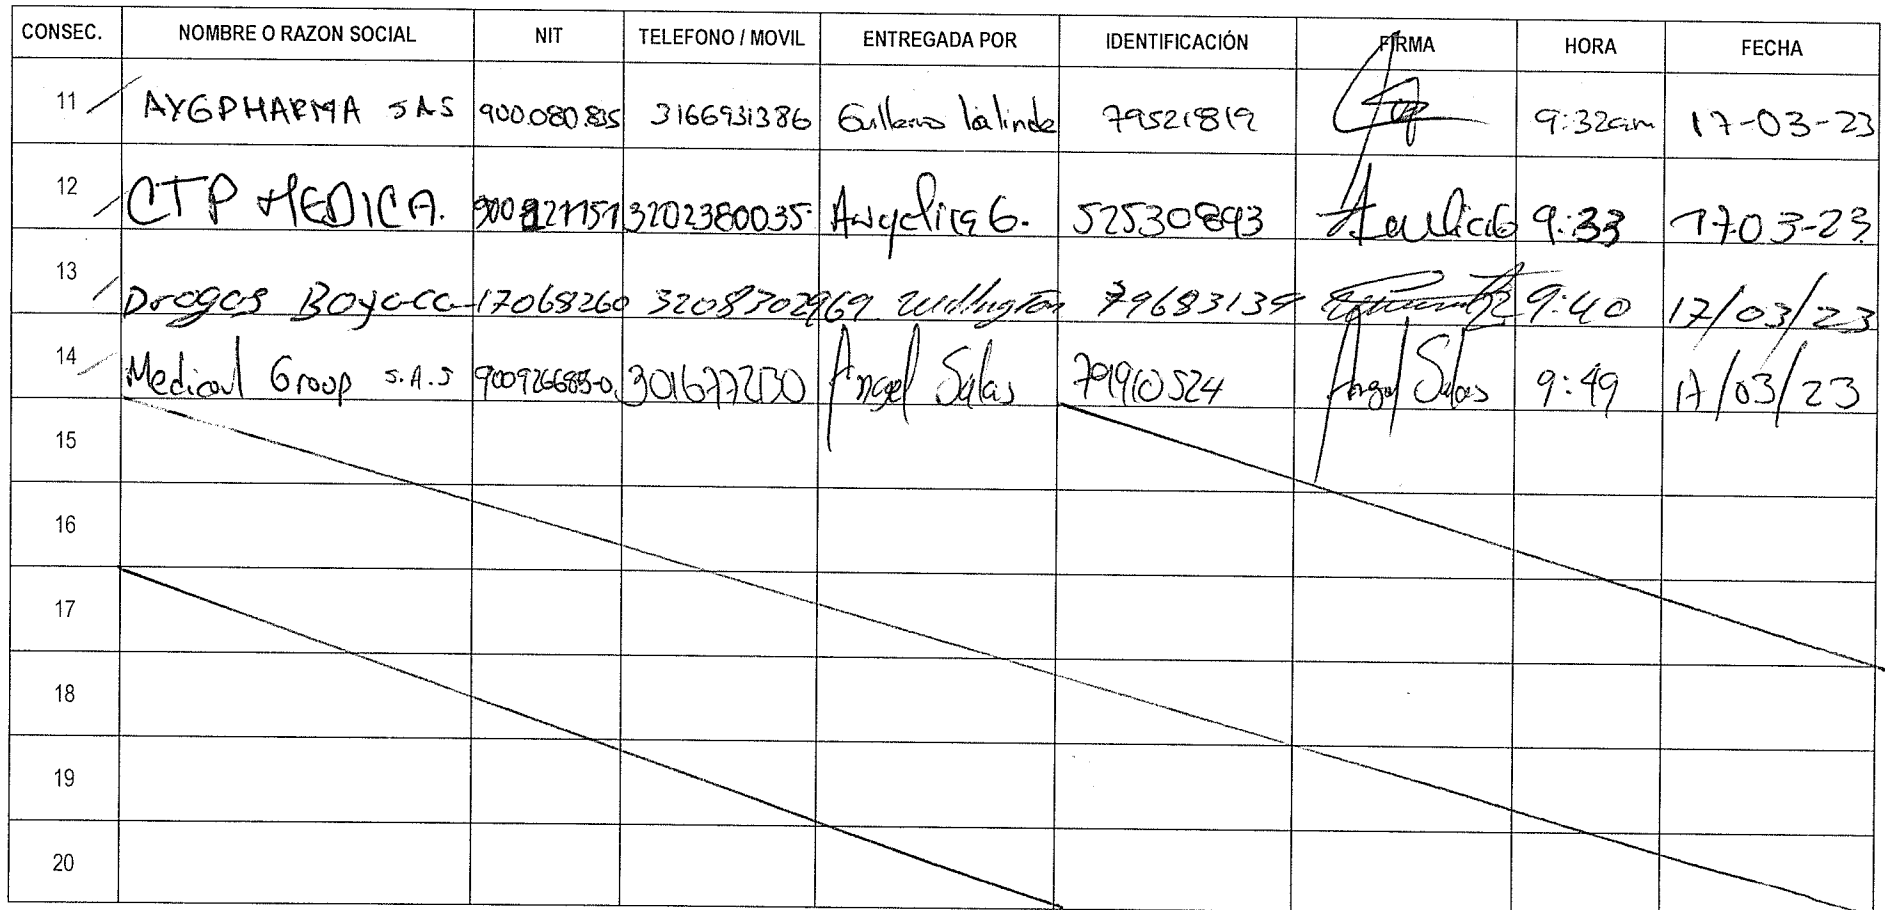 CONSEC. NOMBRE O RAZON SOCIAL NIT TELEFONO / MOVIL ENTREGADA POR IDENTIFICACIÓN FIRMA HORA FECHA
11 AYGPHARMA SAS 900.080.835 3166931386 Guillermo Lalinde 79521819 9:32am 17-03-23
12 CTP MEDICA. 3202380035 Angelica G. 52530893 9:33 1703-23
13 Drogas Boyaca 17068260 3208302969 Wellington 79683139 9:40 17/03/23
14 Medical Group S.A.S 900926685-0 Angel Salas 79910524 Angel Salas 9:49 17/03/23
15
16
17
18
19
20